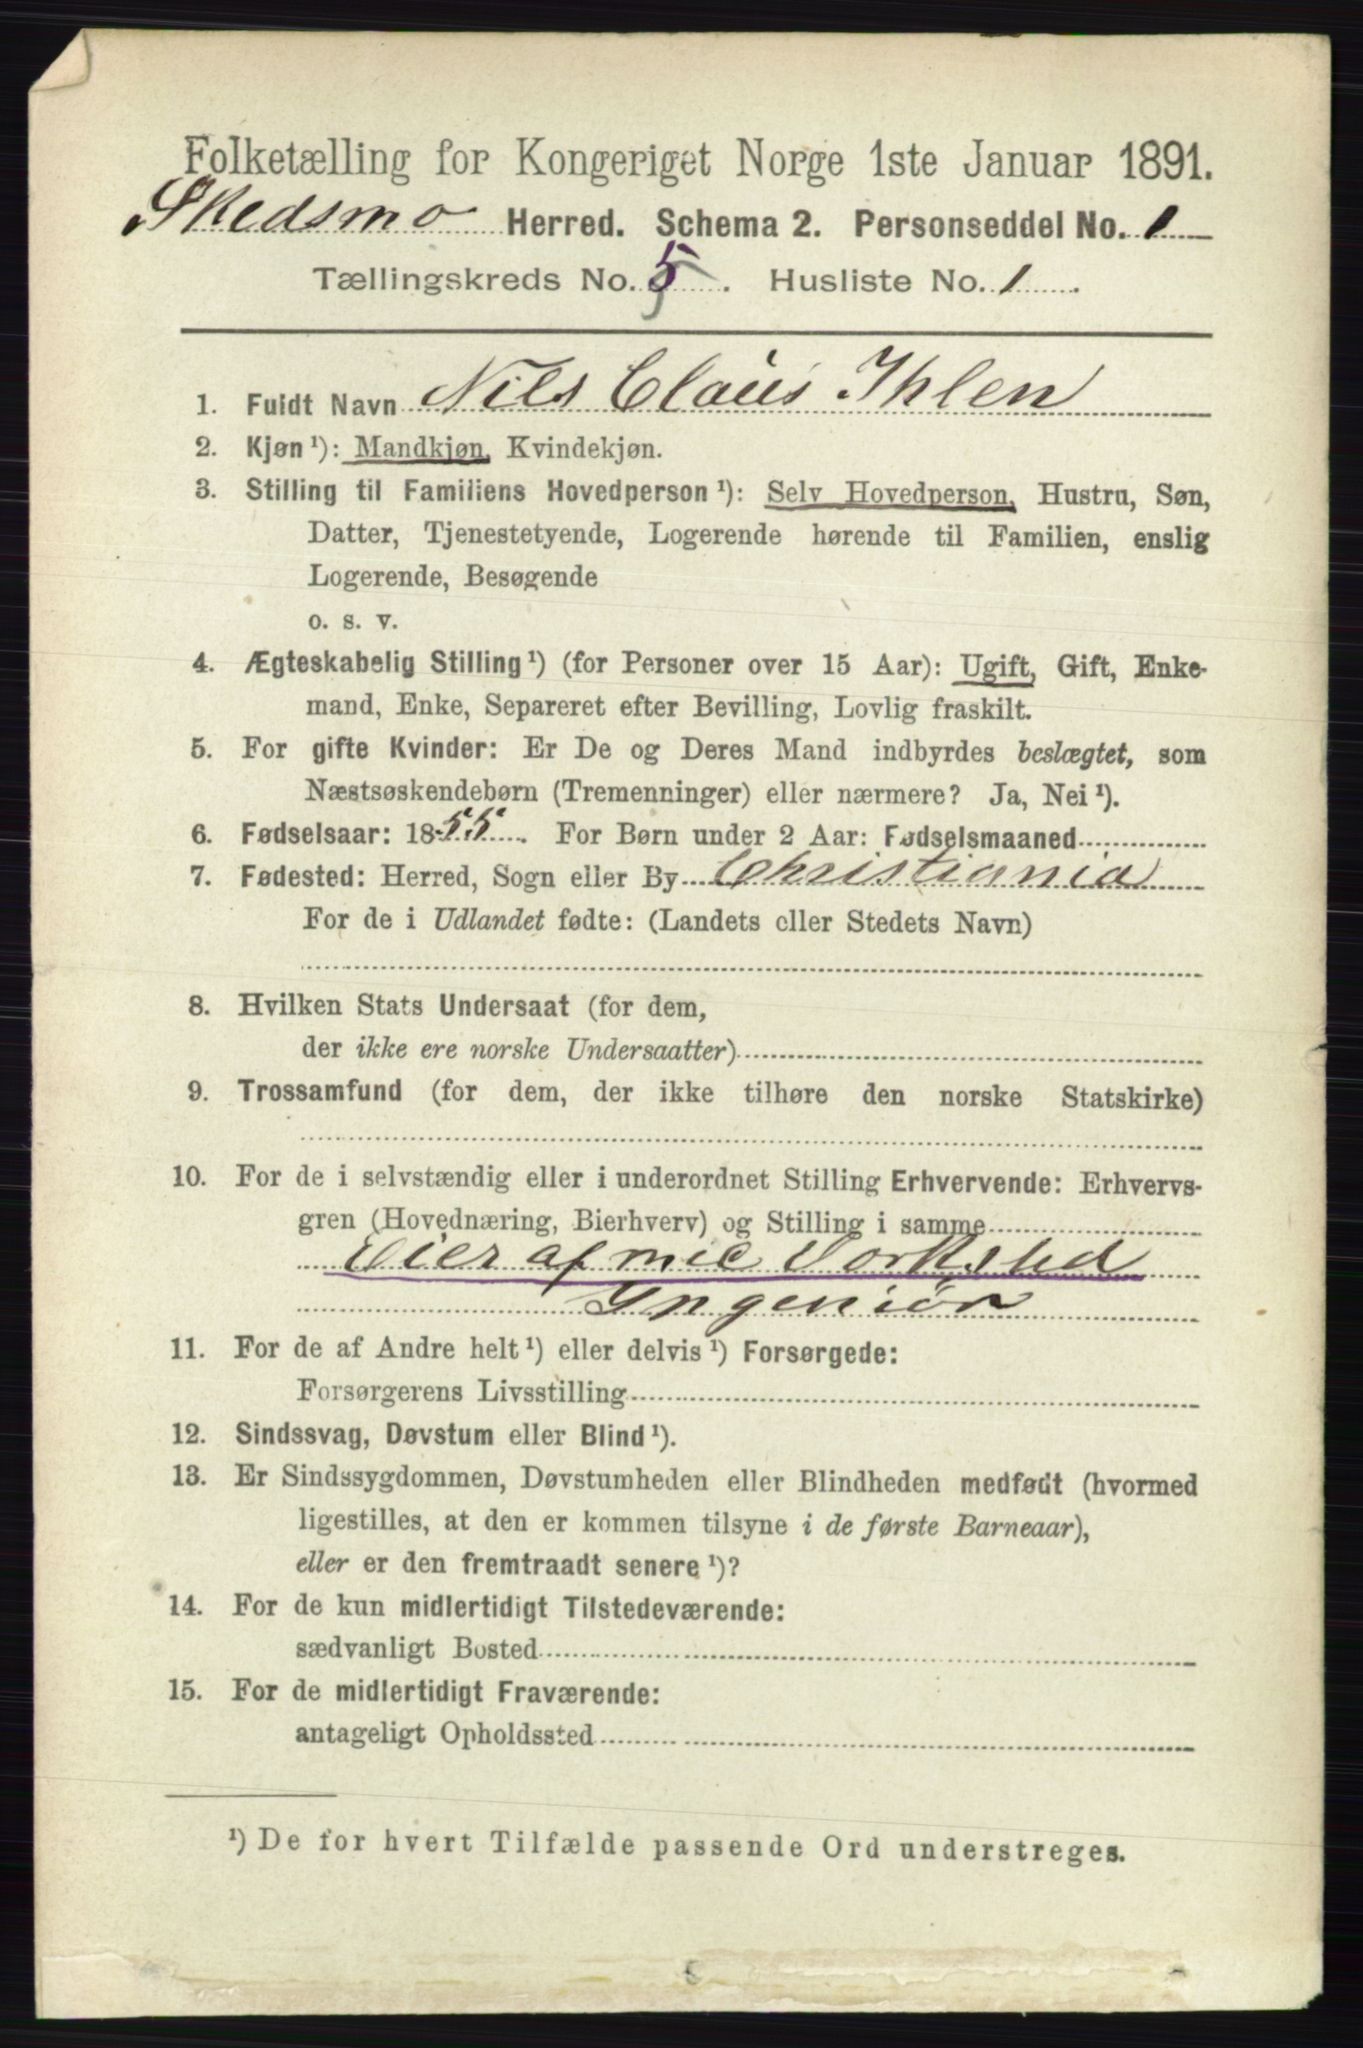 Folketælling for Kongeriget Norge 1ste Januar 1891.
Skedsmo Herred. Schema 2. Personseddel No. 1
Tællingskreds No. 5. Husliste No. 1.
1. Fuldt Navn Nils Claus Ihlen
2. Kjøn¹): Mandkjøn, Kvindekjøn.
3. Stilling til Familiens Hovedperson¹): Selv Hovedperson, Hustru, Søn,
Datter, Tjenestetyende, Logerende hørende til Familien, enslig
Logerende, Besøgende
o. s. v.
4. Ægteskabelig Stilling¹) (for Personer over 15 Aar): Ugift, Gift, Enke-
mand, Enke, Separeret efter Bevilling, Lovlig fraskilt.
5. For gifte Kvinder: Er De og Deres Mand indbyrdes beslægtet, som
Næstsøskendebørn (Tremenninger) eller nærmere? Ja, Nei¹).
6. Fødselsaar: 1855. For Børn under 2 Aar: Fødselsmaaned
7. Fødested: Herred, Sogn eller By Christiania
For de i Udlandet fødte: (Landets eller Stedets Navn)
8. Hvilken Stats Undersaat (for dem,
der ikke ere norske Undersaatter)
9. Trossamfund (for dem, der ikke tilhøre den norske Statskirke)
10. For de i selvstændig eller i underordnet Stilling Erhvervende: Erhvervs-
gren (Hovednæring, Bierhverv) og Stilling i samme
Eier af mec Værksted
Ingeniør
11. For de af Andre helt¹) eller delvis¹) Forsørgede:
Forsørgerens Livsstilling
12. Sindssvag, Døvstum eller Blind¹).
13. Er Sindssygdommen, Døvstumheden eller Blindheden medfødt (hvormed
ligestilles, at den er kommen tilsyne i de første Barneaar),
eller er den fremtraadt senere¹)?
14. For de kun midlertidigt Tilstedeværende:
sædvanligt Bosted
15. For de midlertidigt Fraværende:
antageligt Opholdssted
¹) De for hvert Tilfælde passende Ord understreges.